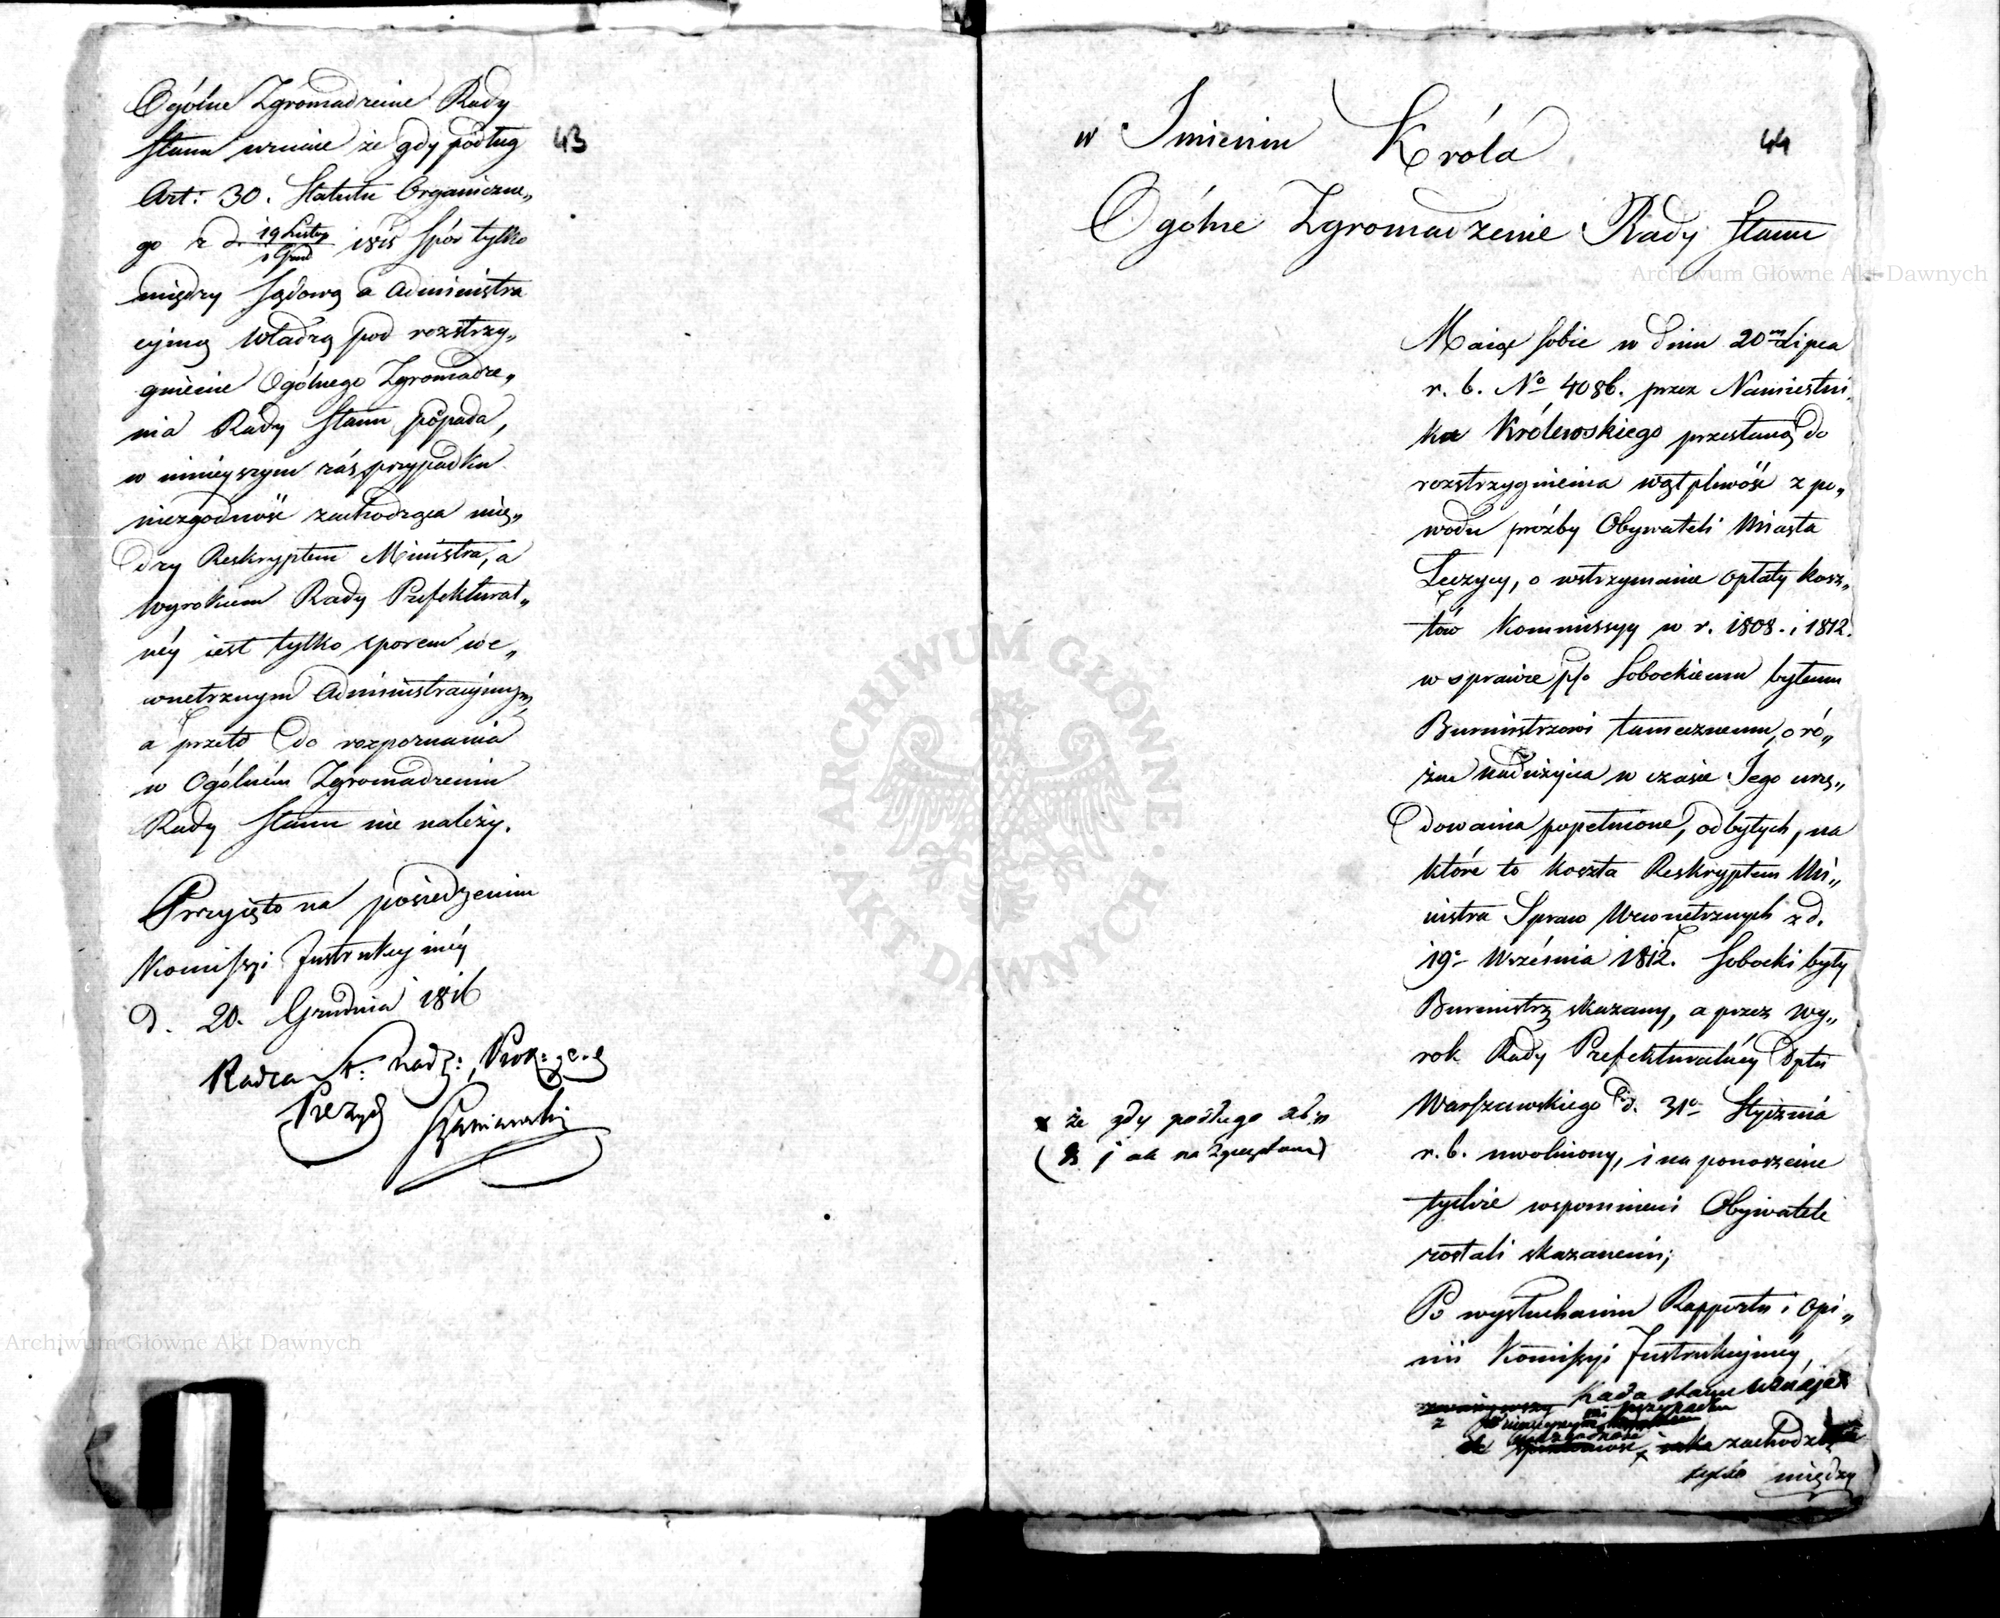 Ogólne Zgromadzenie Rady
Stanu uznaie że gdy podług
Art: 30. Statutu Organiczne„
go z d. 19 Lutego / 1 Grud 1815 spór tylko
między sądową a administra
cyiną władzą pod rozstrzy„
gnienie Ogólnego Zgromadze„
nia Rady Stanu popada,
w ninieyszym zaś przypadku
niezgodność zachodząca mię„
dzy Reskryptem Ministra, a
wyrokiem Rady Prefektural„
néy iest tylko sporem we„
wnętrznym administracyinym,
a przeto do rozpoznania
w Ogólném Zgromadzeniu
Rady Stanu nie należy.
Przyięto na posiedzeniu
Komissyi Instrukcyinéy
d. 20. Grudnia 1816
Radca St: nadz:, Prok:
Prezyd
Szaniawski
43
w Imieniu Króla
44
Ogólne Zgromadzenie Rady Stanu
Maiąc sobie w dniu 20 Lipca
r. b. No 4086. przez Namiestni„
ka Królewskiego przesłaną do
rozstrzygnienia wątpliwość z po„
wodu prośby Obywateli Miasta
Łęczycy, o wstrzymanie opłaty kosz„
tów Kommissyy w r. 1808. i 1812.
w sprawie p/o Sobockiemu byłemu
Burmistrzowi tamecznemu, o ró„
żne nadużycia w czasie Jego urzę„
dowania popełnione, odbytych, na
które to koszta Reskryptem Mi„
nistra Spraw Wewnętrznych z d.
19o Września 1812. Sobocki były
Burmistrz skazany, a przez wy„
rok Rady Prefekturalnéy Dptu
Warszawskiego d. 31o Stycznia
r. b. uwolniony, i na ponoszenie
tychże wspomnieni Obywatele
zostali skazanemi;
Po wysłuchaniu Rapportu i opi„
nii Komissyi Instrukcyinéy,
Rada stanu uznając
przypadku
niezgodność iaka zachodzi
tylko między
x że gdy podług
( jak na
Archiwum Główne Akt Dawnych
Archiwum Główne Akt Dawnych
ARCHIWUM GŁÓWNE · AKT DAWNYCH ·